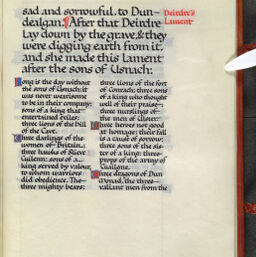 sad and sorrowful, to Dun-
dealgan. After that Deirdre
lay down by the grave, & they
were digging earth from it,
and she made this lament
after the sons of Usnach:
Deirdre's
Lament
Long is the day without
the sons of Usnach; it
was never wearisome
to be in their company;
sons of a king that
entertained exiles;
three lions of the hill
of the Cave.
Three darlings of the
women of Britain,
three hawks of Slieve
Cuilenn; sons of a
king served by valour,
to whom warriors
did obedience. The
three mighty bears;
three lions of the fort
of Conrach; three sons
of a king who thought
well of their praise;
three nurslings of
the men of Ulster.
Three heroes not good
at homage; their fall
is a cause of sorrow;
three sons of the sis-
ter of a king; three
props of the army of
Cuailgne.
Three dragons of Dun
Monad, the three
valiant men from the